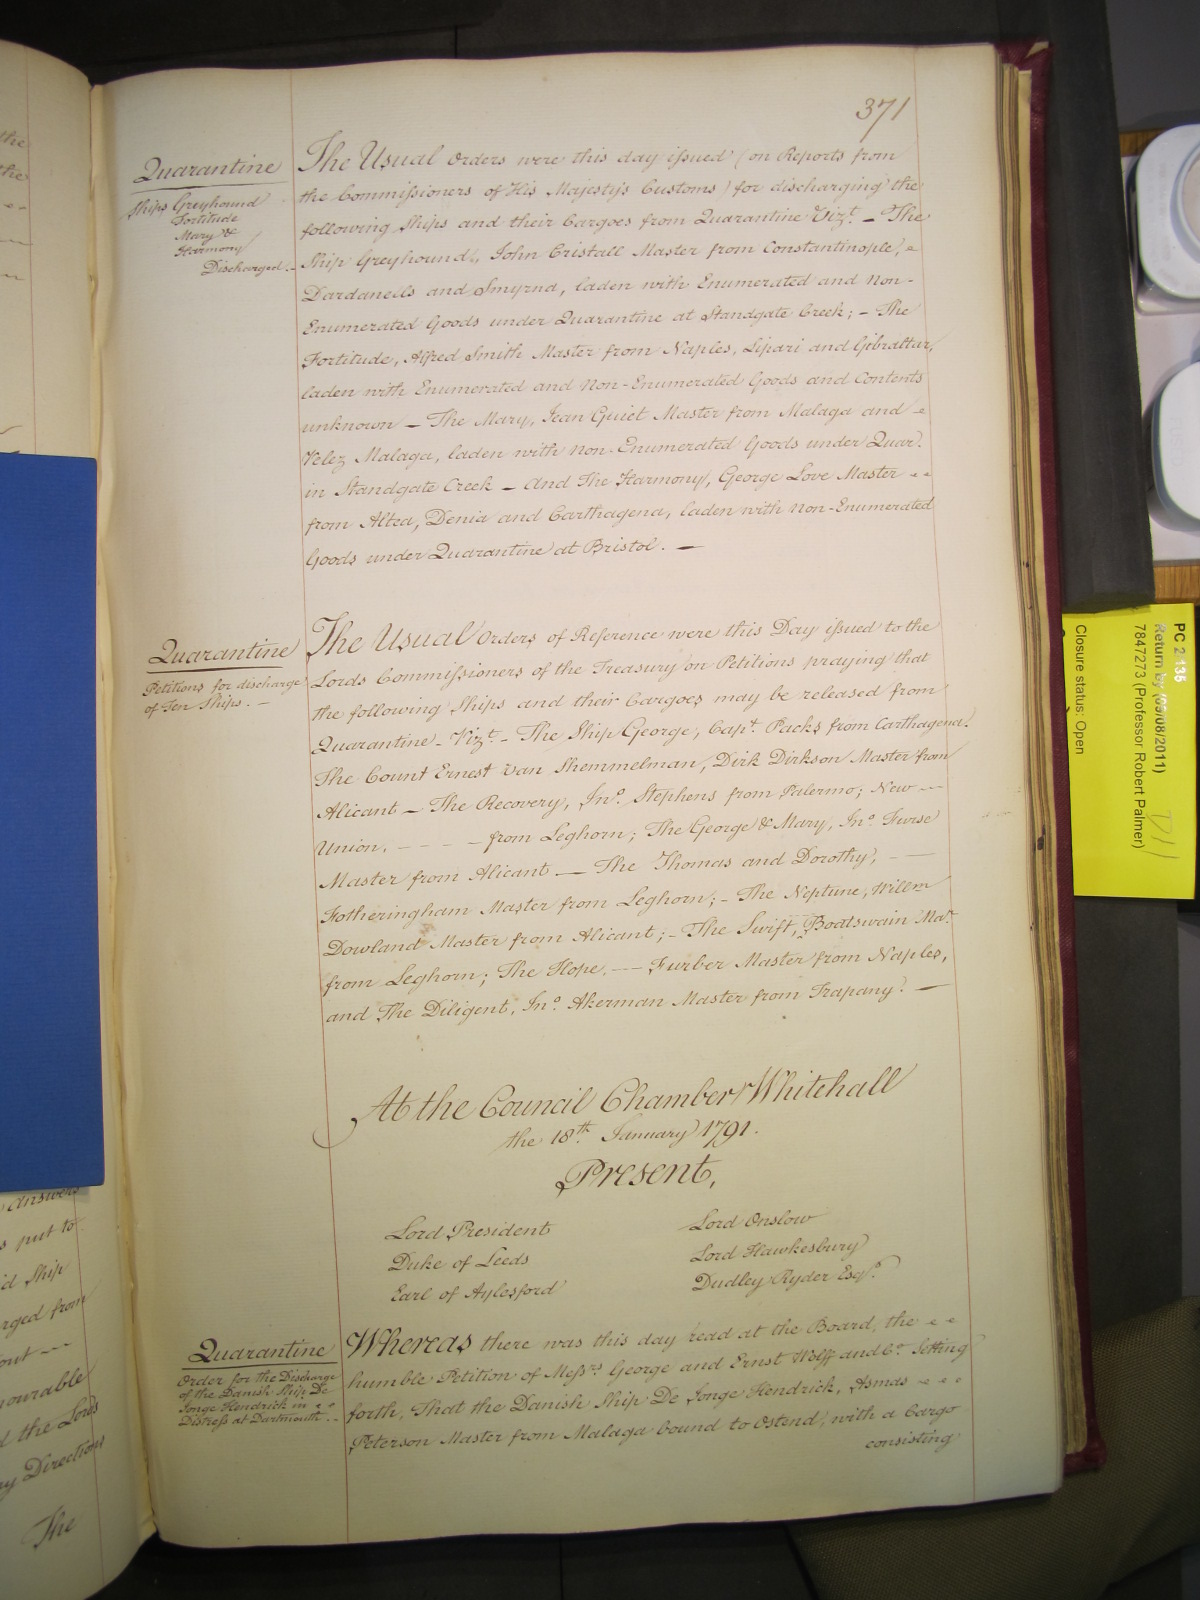 371
Quarantine
Ships Greyhound
Fortitude
Mary &
Harmony
Discharged. -
The Usual Orders were this day issued (on Reports from
the Commissioners of His Majesty's Customs) for discharging the
following Ships and their Cargoes from Quarantine Vizt. - The
Ship Greyhound, John Cristall Master from Constantinople,
Dardanells and Smyrna, laden with Enumerated and Non-
Enumerated Goods under Quarantine at Standgate Creek; - The
Fortitude, Alfred Smith Master from Naples, Lipari and Gibraltar,
laden with Enumerated and Non-Enumerated Goods and Contents
unknown - The Mary, Jean Guiet Master from Malaga and
Velez Malaga, laden with Non-Enumerated Goods under Quar.
in Standgate Creek - And The Harmony, George Love Master
from Altea, Denia and Carthagena, laden with Non-Enumerated
Goods under Quarantine at Bristol. -
Quarantine
Petitions for discharge
of Ten Ships. -
The Usual Orders of Reference were this Day issued to the
Lords Commissioners of the Treasury on Petitions praying that
the following Ships and their Cargoes may be released from
Quarantine - Vizt. - The Ship George, Capt. Packs from Carthagena.
The Count Ernest Van Shemmelman, Dirk Dirkson Master from
Alicant - The Recovery, Jno. Stephens from Palermo; New - -
Union, - - - from Leghorn; The George & Mary, Jno. Furse
Master from Alicant - The Thomas and Dorothy, - -
Fotheringham Master from Leghorn; - The Neptune, Willm
Dowland Master from Alicant; - The Swift, Boatswain Mar.
from Leghorn; The Hope, - - Furber Master from Naples,
and The Diligent, Jno. Akerman Master from Trapany. -
At the Council Chamber Whitehall
the 18th. January 1791.
Present,
Lord President
Duke of Leeds
Earl of Aylesford
Lord Onslow
Lord Hawkesbury
Dudley Ryder Esqr.
Quarantine
Order for the Discharge
of the Danish Ship De
Jonge Hendrick in
Distress at Dartmouth. -
Whereas there was this day read at the Board, the
humble Petition of Messrs. George and Ernst Wolff and Co. Setting
forth, That the Danish Ship De Jonge Hendrick, Asmas
Peterson Master from Malaga bound to Ostend, with a Cargo
consisting
Answers
s put to
id Ship
rged from
out - -
nourable
d the Lords
ry Directions
The
the
the
PC 2 135
Return by (09/08/2011)
7847273 (Professor Robert Palmer)
Closure status: Open
D11